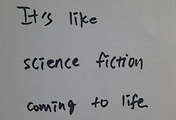 It's like
science fiction
coming to life